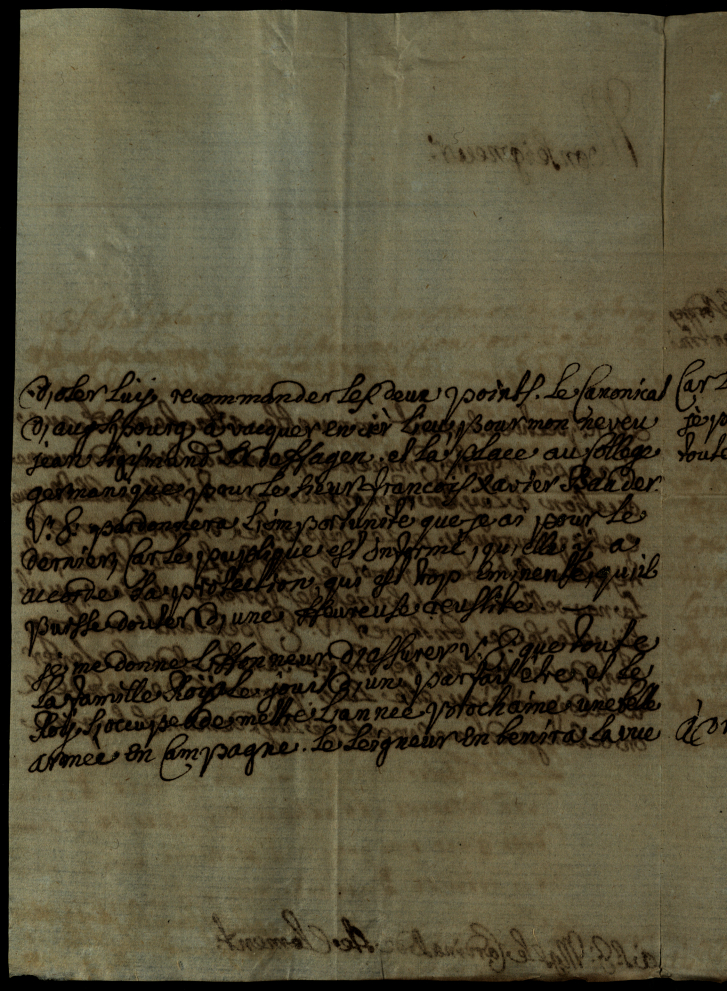 D'oser luy recommander les deux points. Le Canonicat
D'augsbourg à vacquer en cièr Lieu, pour mon neveu
jean et la place au College
germanique pour le sieur françois Xavier Baader.
V: E: pardonnera L'importunité que j'ai pour le
dernier, Car le puplique est informé, qu'elle y a
accordé Sa protection qui est trop Eminente, qu'il
puisse douter D'une Heureuse reussite.
je me donne L'Honneur D'assurer V: E: que toute
La famille Roiyale jouit D'une parfait etre et le
Roiy s'occupe de mettre L'année prochaine une telle
armée en Campagne. Le Seigneur en benira la vue
Car
je
toute
Monseigneur.
à S: E: Mgr le Cardinal